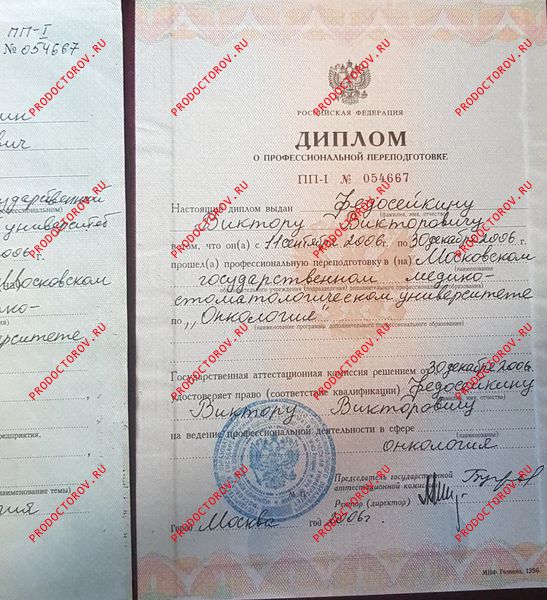 ПП-I
№ 054667
ин
вич
сударственной
ессиональном)
университет
006г.
Московском
ко-
ерситете
редприятия,
наименование темы)
гия
РОССИЙСКАЯ ФЕДЕРАЦИЯ
ДИПЛОМ
О ПРОФЕССИОНАЛЬНОЙ ПЕРЕПОДГОТОВКЕ
ПП-I № 054667
Настоящий диплом выдан Федосейкину
(фамилия, имя, отчество)
Виктору Викторовичу
в том, что он(а) с 11 сентября 2006 г. по 30 декабря 2006 г.
прошел(а) профессиональную переподготовку в (на) Московском
(наименование
государственном медико-
учреждения (подразделения) дополнительного профессионального образования)
стоматологическом университете
по „Онкология"
(наименование программы дополнительного профессионального образования)
Государственная аттестационная комиссия решением от 30 декабря 2006г.
удостоверяет право (соответствие квалификации) Федосейкину
(фамилия, имя, отчество)
Виктору Викторовичу
на ведение профессиональной деятельности в сфере
(наименование)
онкология
Председатель государственной
аттестационной комиссии
М.П.
Ректор (директор)
Город Москва год 2006г.
МПФ. Гознака. 1996.
PRODOCTOROV.RU